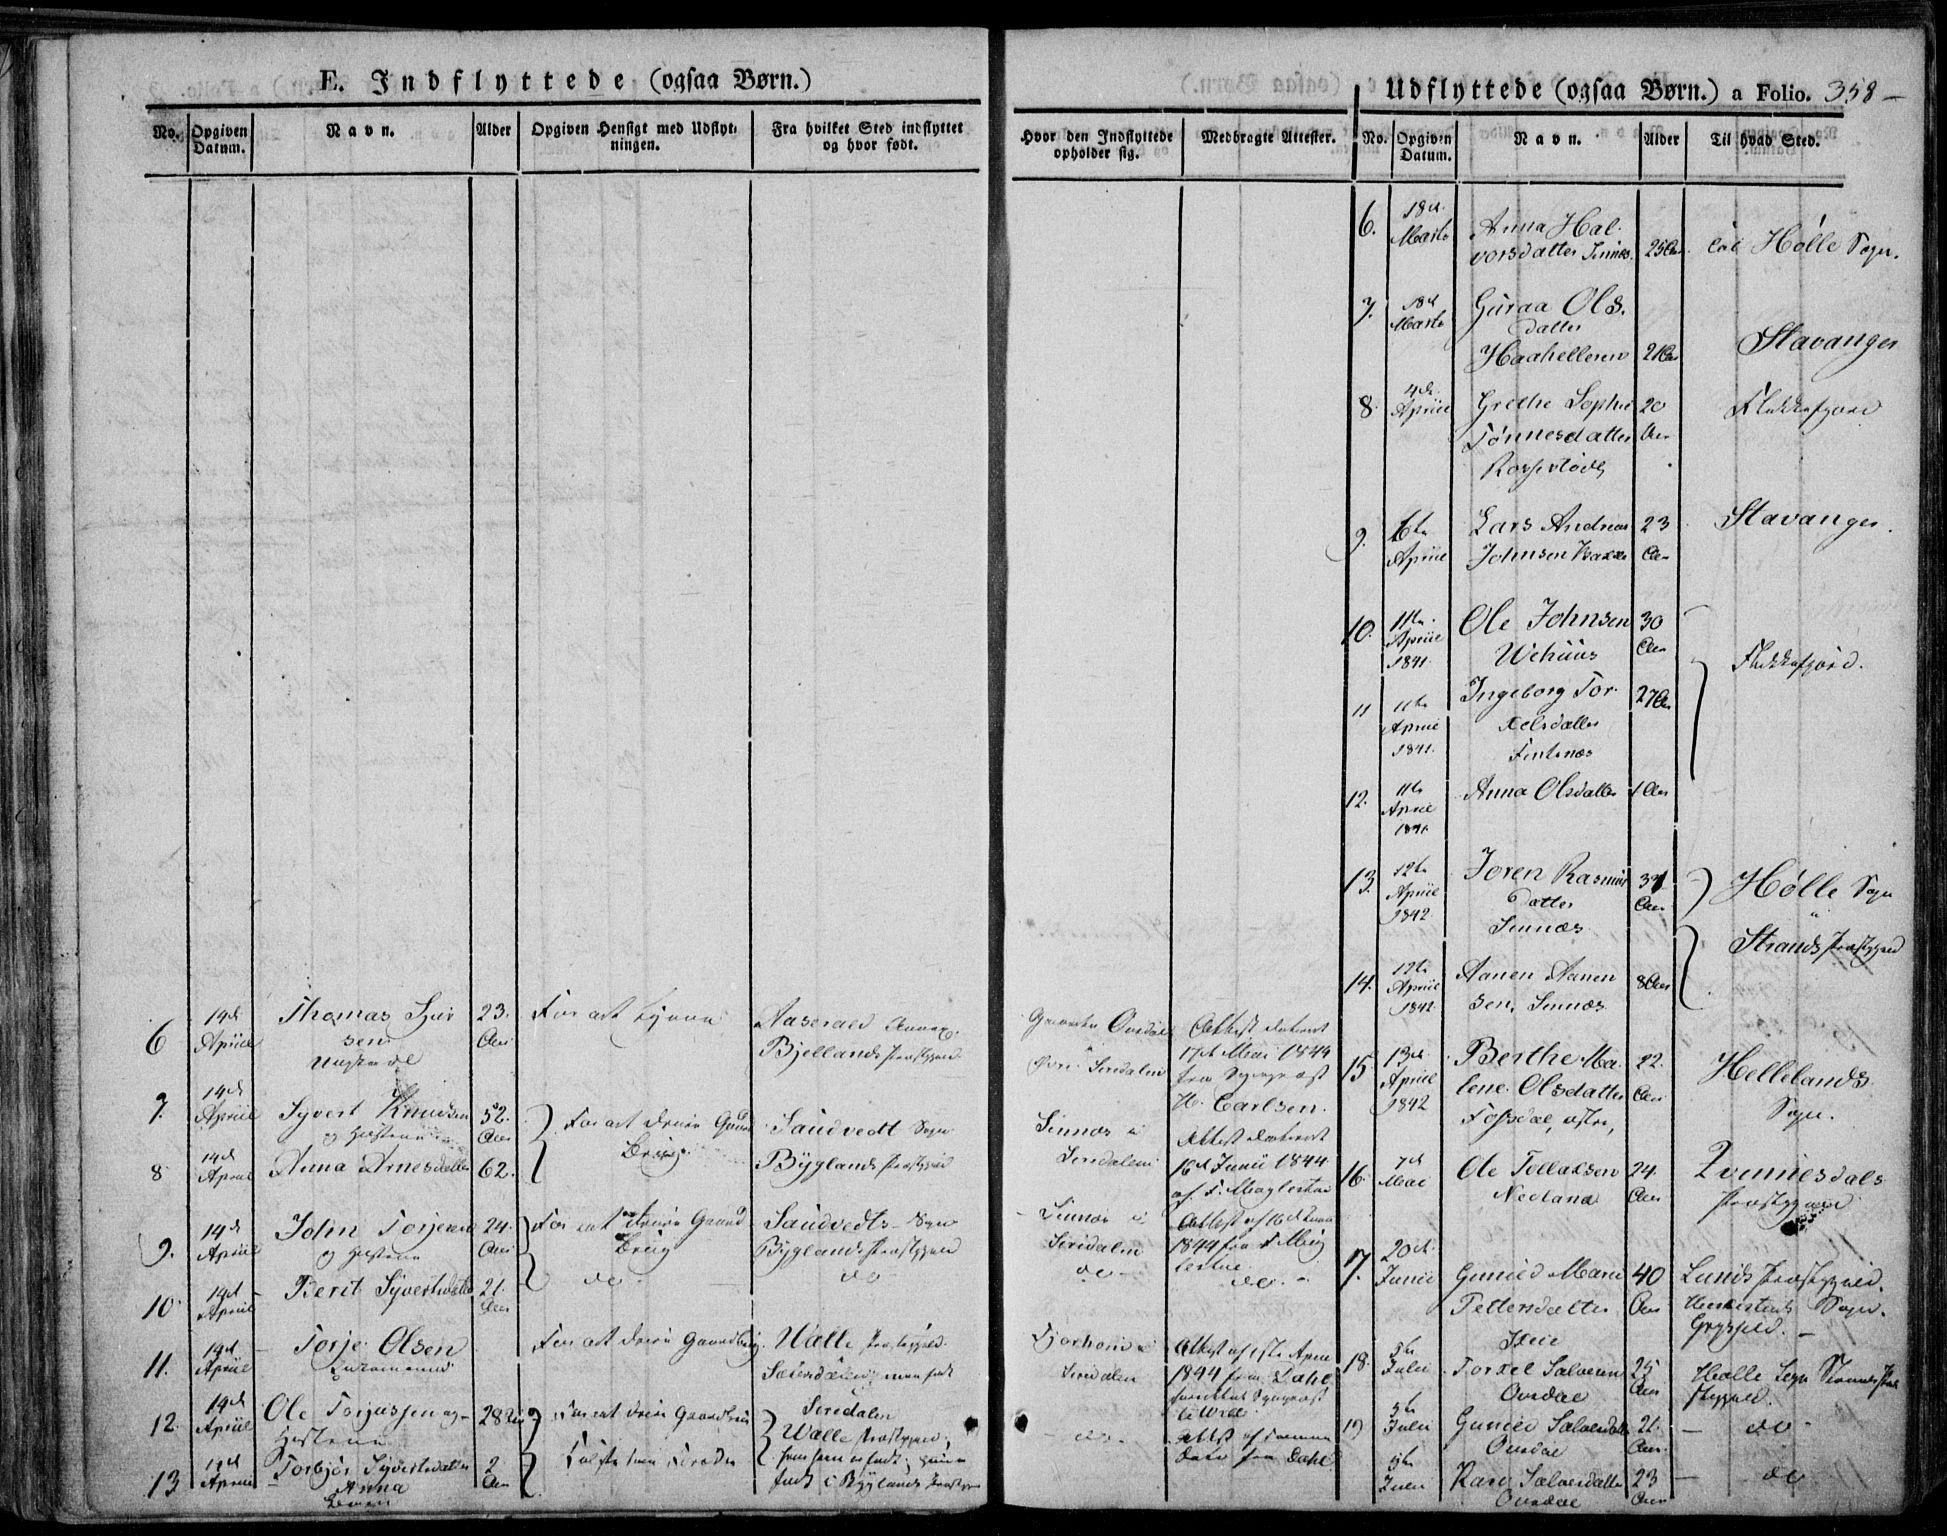 E. Indflyttede (ogsaa Børn.)
No.
Opgiven Datum.
Navn.
Alder
Opgiven Hensigt med Udflyt:
ningen.
Fra hvilket Sted indflyttet
og hvor født.
6
14de
Apriil
Thomas
sen
23.
Aar
For at tjene
Aaserald
Bjellands Præstegjeld
7.
14de
Apriil
Syvert Knudsen
og Hustrue
52.
Aar
For at drive Gaard
Brug.
Sandvedt Sogn
8
14de
Apriil
Anna Arnesdatter
62.
Byglands Præstegjeld
9.
14de
Apriil
John Torjesen
og Hustrue
24.
Aar
For at drive Gaard
Brug
Sandvedts Sogn
Byglands Præstegjeld
10
14de
Apriil
Berit Syvertsdatter
21.
Aar
do
do
11.
14de
Apriil
Torje Olsen
For at drive Gaardbrug.
Walle Præstegjeld.
Sætersdalen, men født
12.
14de
Apriil
Ole Torjussen og
Hustrue
28 Aar
For at drive Gaardbrug
Siredalen
Walle Præstegjeld,
13
14de
Apriil
Torbjør Syvertsdatter
Anna
2
Aar
født i Byglands
Hvor den Indflyttede
opholder sig.
Medbragte Attester.
Gaarden Ousdal
Øvre Siredalen
Attest dateret
17de Mai 1844
fra Sognepræst
H. Carlsen.
Sinnes i
Siredalen
Attest dateret
16de Junii 1844
af F. Maglestue
Sinnes i
Siredalen
Attest af 16de Junii
1844 fra F. Mag
lestue
do
do
Fjorhom i
Siredalen
Attest af 1ste April
1844 fra Dahl
do
Attest af samme
Dato fra Dahl
Udflyttede (ogsaa Børn.) a Folio. 358
No.
Opgiven
Datum.
Navn.
Alder
Til hvad Sted.
6.
18de
Marts
Anna Hal-
vorsdatter Sinnes.
25 Aar.
til Hølle Sogn.
7.
18de
Marts
Guraa Ols
datter
Haahelleren
21 Aar
Stavanger
8.
4de
Apriil
Grethe Sophie
Tønnesdatter
20
Aar
Flekkefjord
9.
6te
Apriil
Lars Andreas
Johnsen Bakke
23
Aar
Stavanger.
10.
11te
Apriil
1841.
Ole Johnsen
Wehuus
30
Aar
Flekkefjord.
11
11te
Apriil
1841.
Ingeborg Tor-
kelsdatter
Fintnæs
27 Aar
12.
11te
Apriil
1841.
Anna Olsdatter
1 Aar
13.
12te
Apriil
1842
Joren Rasmus
datter
Sinnæs
Aar
Hølle Sogn
Strands Præstegjeld
14.
12te
Apriil
1842
Aanen Aanen
sen, Sinnæs
8 Aar
15
13de
Apriil
1842
Berthe Ma-
lene Olsdatter
Fossdal, østre,
22.
Aar
Hellelands
Sogn.
16.
7de
Mai
Ole Tollaksen
Nedland
24.
Aar
Qvinnesdals
Præstegjeld
17.
20de
Junii
Gunild Marie
Pettersdatter
Skeie
40
Aar
Lunds Præstegjeld.
Heskestads Sogn.
18.
5te
Julii
Torkel Salvesen
Ousdal
25
Aar
19
5te
Julii
Gunild Salvesdatter
Ousdal
21.
Aar
do
5te
Julii
Kari Salvesdatter
Ousdal
23
Aar
do